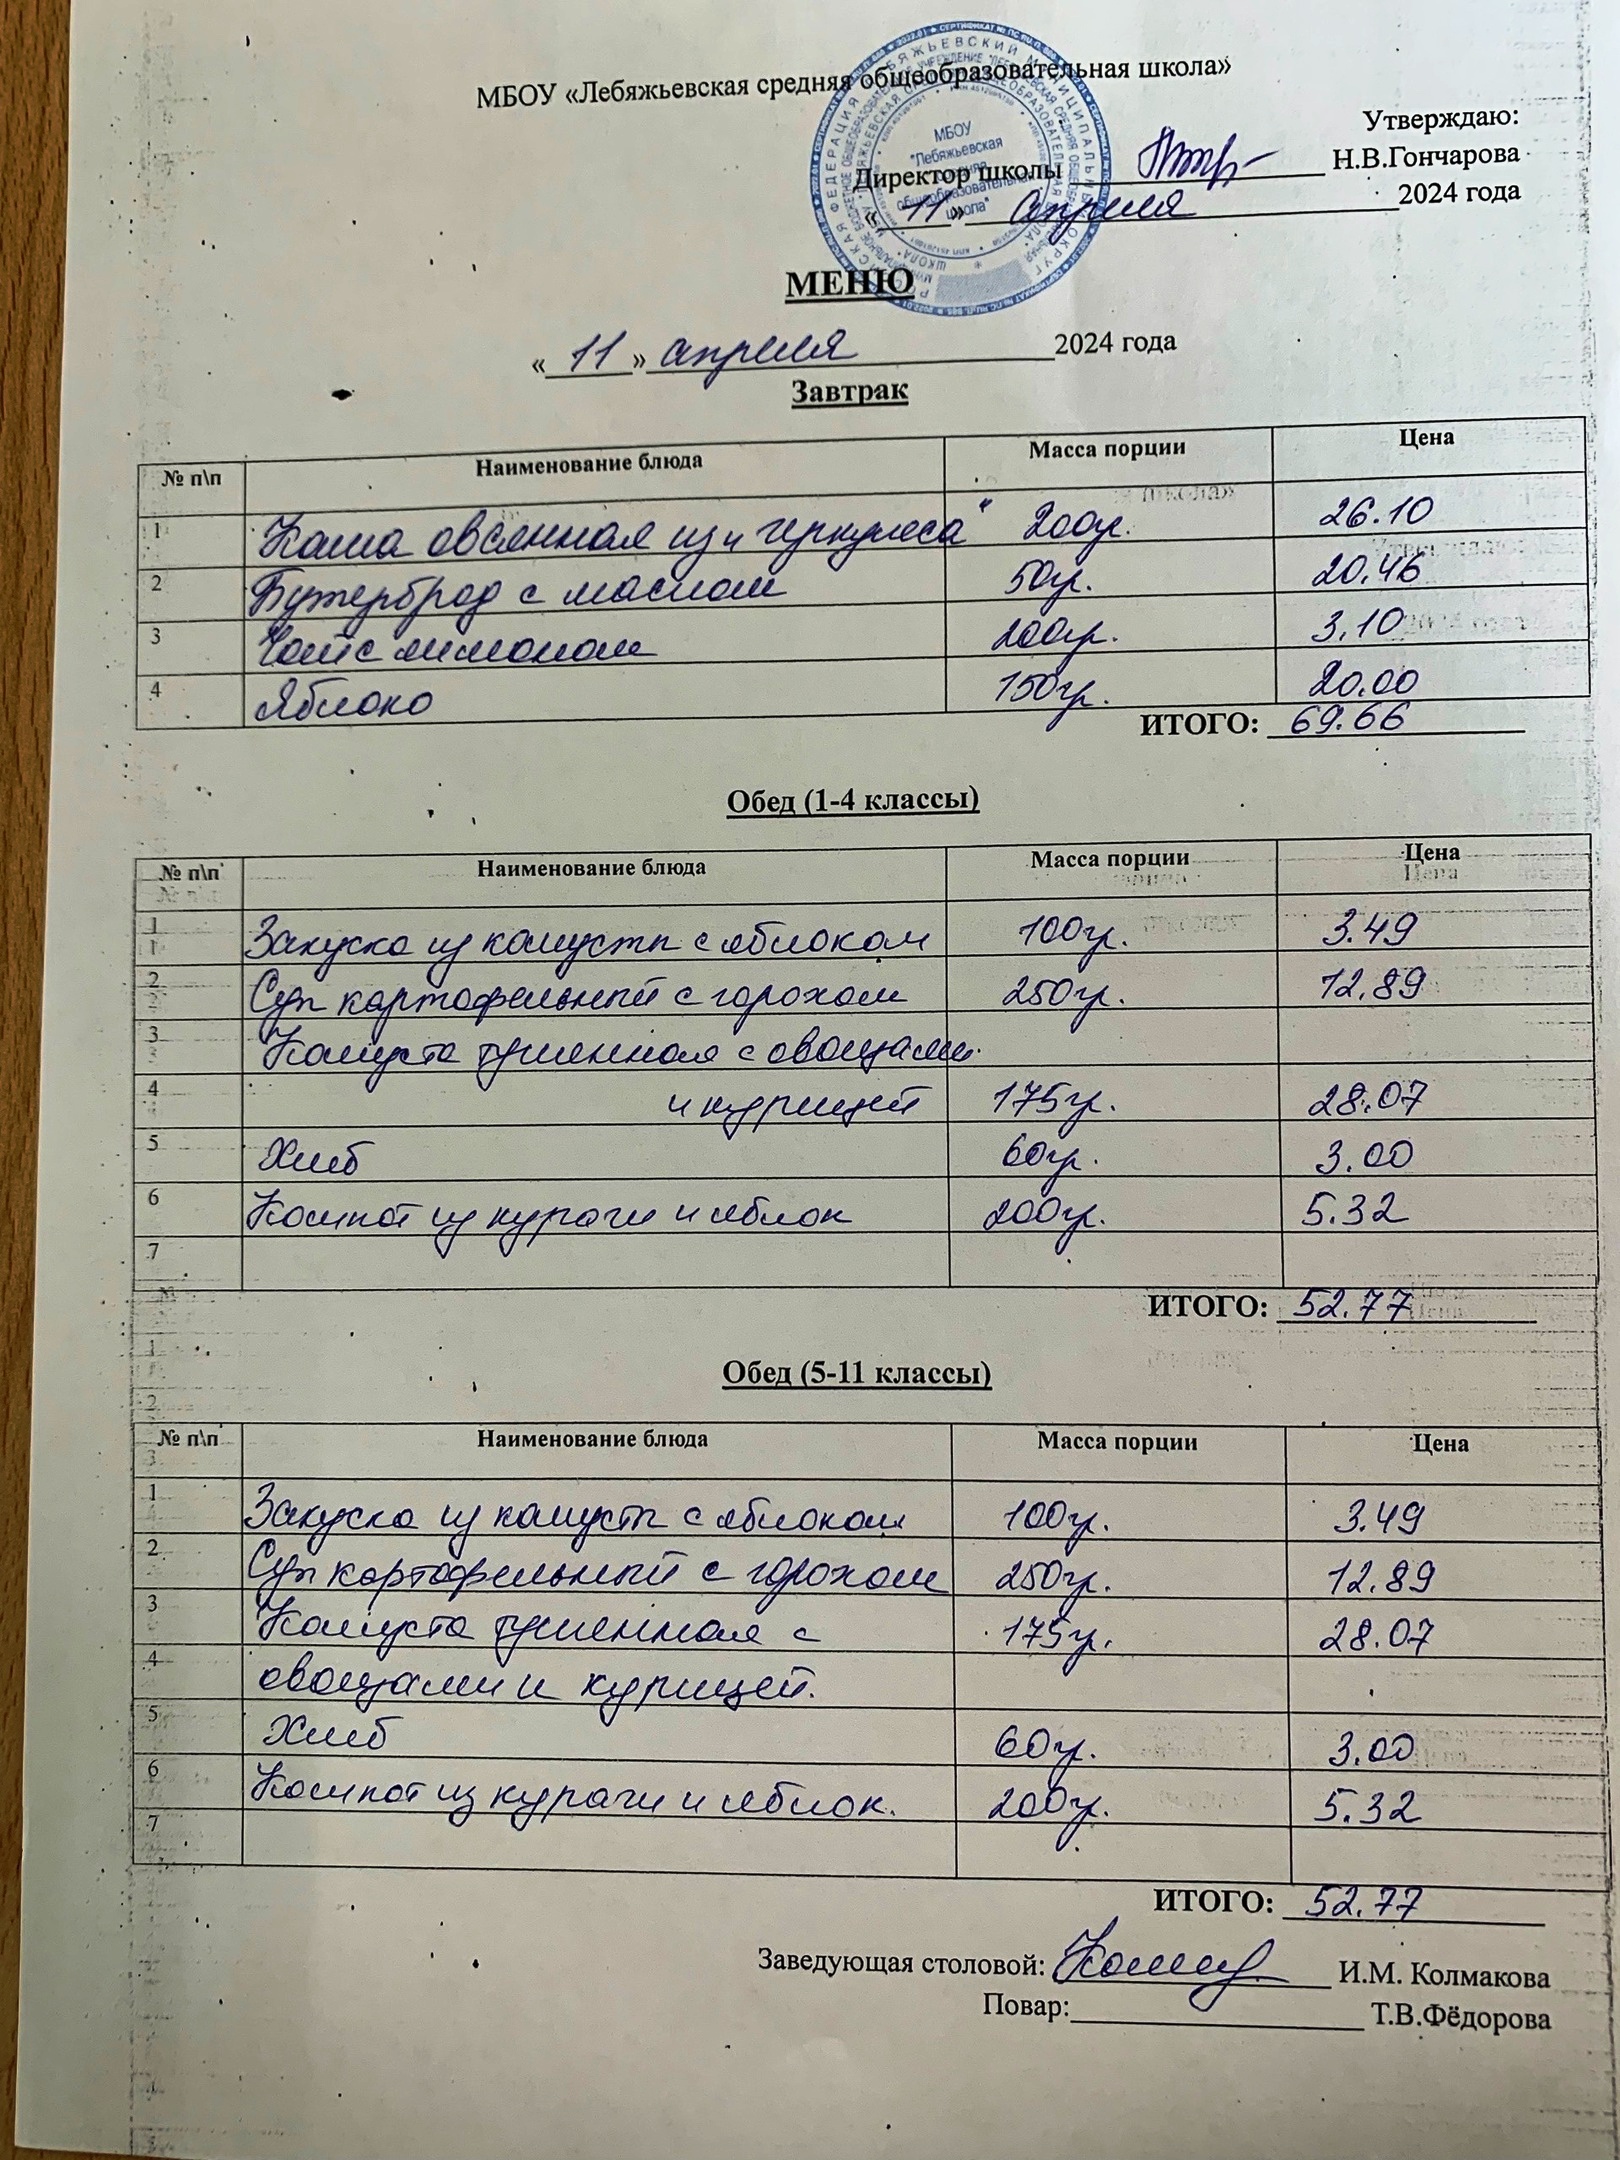 МБОУ «Лебяжьевская средняя общеобразовательная школа»
Утверждаю:
Директор школы Н.В.Гончарова
«11» апреля 2024 года
МБОУ
"Лебяжьевская
средняя
общеобразовательная
школа"
МЕНЮ
«11» апреля 2024 года
Завтрак
№ п\п Наименование блюда Масса порции Цена
1 Каша овсянная из "геркулеса" 200гр. 26.10
2 Бутерброд с маслом 50гр. 20.46
3 Чай с лимоном 200гр. 3.10
4 Яблоко 150гр. 20.00
ИТОГО: 69.66
Обед (1-4 классы)
№ п\п Наименование блюда Масса порции Цена
1 Закуска из капусты с яблоком 100гр. 3.49
2 Суп картофельный с горохом 250гр. 12.89
3 Капуста тушенная с овощами
4 и курицей 175гр. 28.07
5 Хлеб 60гр. 3.00
6 Компот из кураги и яблок 200гр. 5.32
7
ИТОГО: 52.77
Обед (5-11 классы)
№ п\п Наименование блюда Масса порции Цена
1 Закуска из капусты с яблоком 100гр. 3.49
2 Суп картофельный с горохом 250гр. 12.89
3 Капуста тушенная с 175гр. 28.07
4 овощами и курицей.
5 Хлеб 60гр. 3.00
6 Компот из кураги и яблок. 200гр. 5.32
7
ИТОГО: 52.77
Заведующая столовой: И.М. Колмакова
Повар: Т.В.Фёдорова